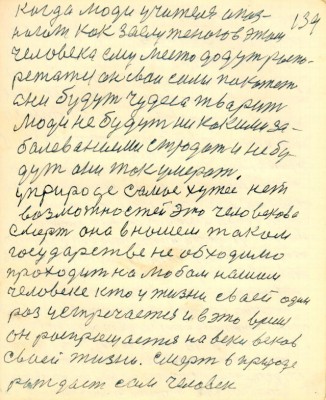 когда люди учителя опоз-
нают как заслуженого в этом
человека ему место дадут распо-
режатся он свои силы покажет
они будут чудеса творит
люди не будут никакими за-
балеваниями страдат и небу
дут они так умерат.
у природе самое хужее нет
возможностей это человекова
смерт она в нашем таком
государстве необходимо
проходит на любом нашем
человеке кто у жизни своей один
раз устречается и в это время
он роспрощается на веки веков
своей жизни. смерт в природе
раждает сам человек
134